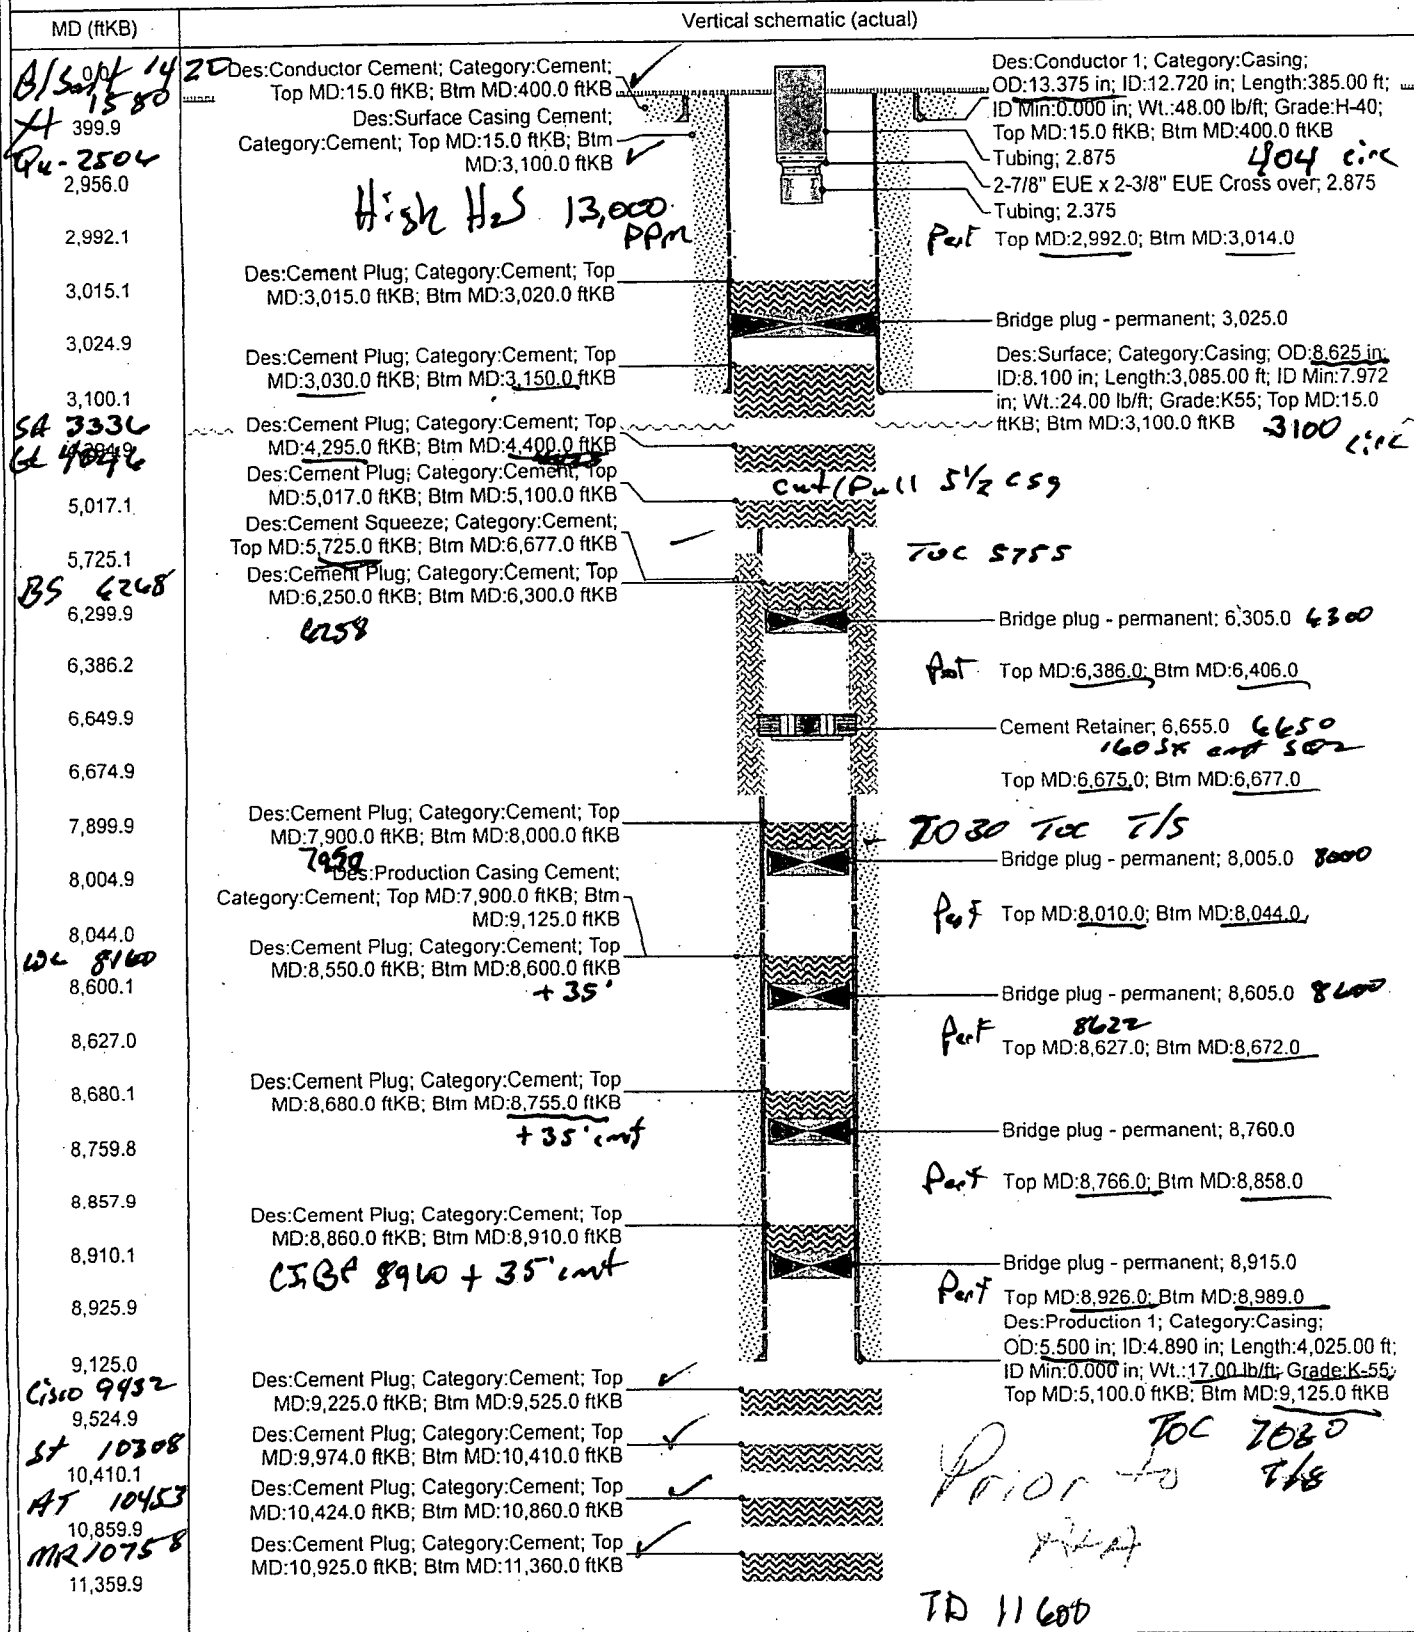 MD (ftKB)
Vertical schematic (actual)
B/Salt 1420
0.0
1580
399.9
Qu-2504
2,956.0
2,992.1
3,015.1
3,024.9
3,100.1
SA 3336
GL
5,017.1
5,725.1
BS 6268
6,299.9
6,386.2
6,649.9
6,674.9
7,899.9
8,004.9
8,044.0
WC 8160
8,600.1
8,627.0
8,680.1
8,759.8
8,857.9
8,910.1
8,925.9
9,125.0
Cisco 9432
9,524.9
St 10308
10,410.1
AT 10453
10,859.9
MR 10758
11,359.9
Des:Conductor Cement; Category:Cement;
Top MD:15.0 ftKB; Btm MD:400.0 ftKB
Des:Surface Casing Cement;
Category:Cement; Top MD:15.0 ftKB; Btm
MD:3,100.0 ftKB
High H2S 13,000
PPM
Des:Cement Plug; Category:Cement; Top
MD:3,015.0 ftKB; Btm MD:3,020.0 ftKB
Des:Cement Plug; Category:Cement; Top
MD:3,030.0 ftKB; Btm MD:3,150.0 ftKB
Des:Cement Plug; Category:Cement; Top
MD:4,295.0 ftKB; Btm MD:4,400.0 ftKB
Des:Cement Plug; Category:Cement; Top
MD:5,017.0 ftKB; Btm MD:5,100.0 ftKB
Des:Cement Squeeze; Category:Cement;
Top MD:5,725.0 ftKB; Btm MD:6,677.0 ftKB
Des:Cement Plug; Category:Cement; Top
MD:6,250.0 ftKB; Btm MD:6,300.0 ftKB
6258
Des:Cement Plug; Category:Cement; Top
MD:7,900.0 ftKB; Btm MD:8,000.0 ftKB
7950
Des:Production Casing Cement;
Category:Cement; Top MD:7,900.0 ftKB; Btm
MD:9,125.0 ftKB
Des:Cement Plug; Category:Cement; Top
MD:8,550.0 ftKB; Btm MD:8,600.0 ftKB
+ 35'
Des:Cement Plug; Category:Cement; Top
MD:8,680.0 ftKB; Btm MD:8,755.0 ftKB
+ 35' cmt
Des:Cement Plug; Category:Cement; Top
MD:8,860.0 ftKB; Btm MD:8,910.0 ftKB
CIBP 8910 + 35' cmt
Des:Cement Plug; Category:Cement; Top
MD:9,225.0 ftKB; Btm MD:9,525.0 ftKB
Des:Cement Plug; Category:Cement; Top
MD:9,974.0 ftKB; Btm MD:10,410.0 ftKB
Des:Cement Plug; Category:Cement; Top
MD:10,424.0 ftKB; Btm MD:10,860.0 ftKB
Des:Cement Plug; Category:Cement; Top
MD:10,925.0 ftKB; Btm MD:11,360.0 ftKB
Des:Conductor 1; Category:Casing;
OD:13.375 in; ID:12.720 in; Length:385.00 ft;
ID Min:0.000 in; Wt.:48.00 lb/ft; Grade:H-40;
Top MD:15.0 ftKB; Btm MD:400.0 ftKB
Tubing; 2.875
404 circ
2-7/8" EUE x 2-3/8" EUE Cross over; 2.875
Tubing; 2.375
Perf Top MD:2,992.0; Btm MD:3,014.0
Bridge plug - permanent; 3,025.0
Des:Surface; Category:Casing; OD:8.625 in;
ID:8.100 in; Length:3,085.00 ft; ID Min:7.972
in; Wt.:24.00 lb/ft; Grade:K55; Top MD:15.0
ftKB; Btm MD:3,100.0 ftKB
3100 circ
cut/Pull 5 1/2 csg
TOC 5755
Bridge plug - permanent; 6,305.0 6300
Perf Top MD:6,386.0; Btm MD:6,406.0
Cement Retainer; 6,655.0 6650
160 sx cmt SQZ
Top MD:6,675.0; Btm MD:6,677.0
7030 TOC T/S
Bridge plug - permanent; 8,005.0 8000
Perf Top MD:8,010.0; Btm MD:8,044.0
Bridge plug - permanent; 8,605.0 8600
Perf 8622
Top MD:8,627.0; Btm MD:8,672.0
Bridge plug - permanent; 8,760.0
Perf Top MD:8,766.0; Btm MD:8,858.0
Bridge plug - permanent; 8,915.0
Perf Top MD:8,926.0; Btm MD:8,989.0
Des:Production 1; Category:Casing;
OD:5.500 in; ID:4.890 in; Length:4,025.00 ft;
ID Min:0.000 in; Wt.:17.00 lb/ft; Grade:K-55;
Top MD:5,100.0 ftKB; Btm MD:9,125.0 ftKB
TOC 7030
T/S
Prior to
P&A
TD 11600